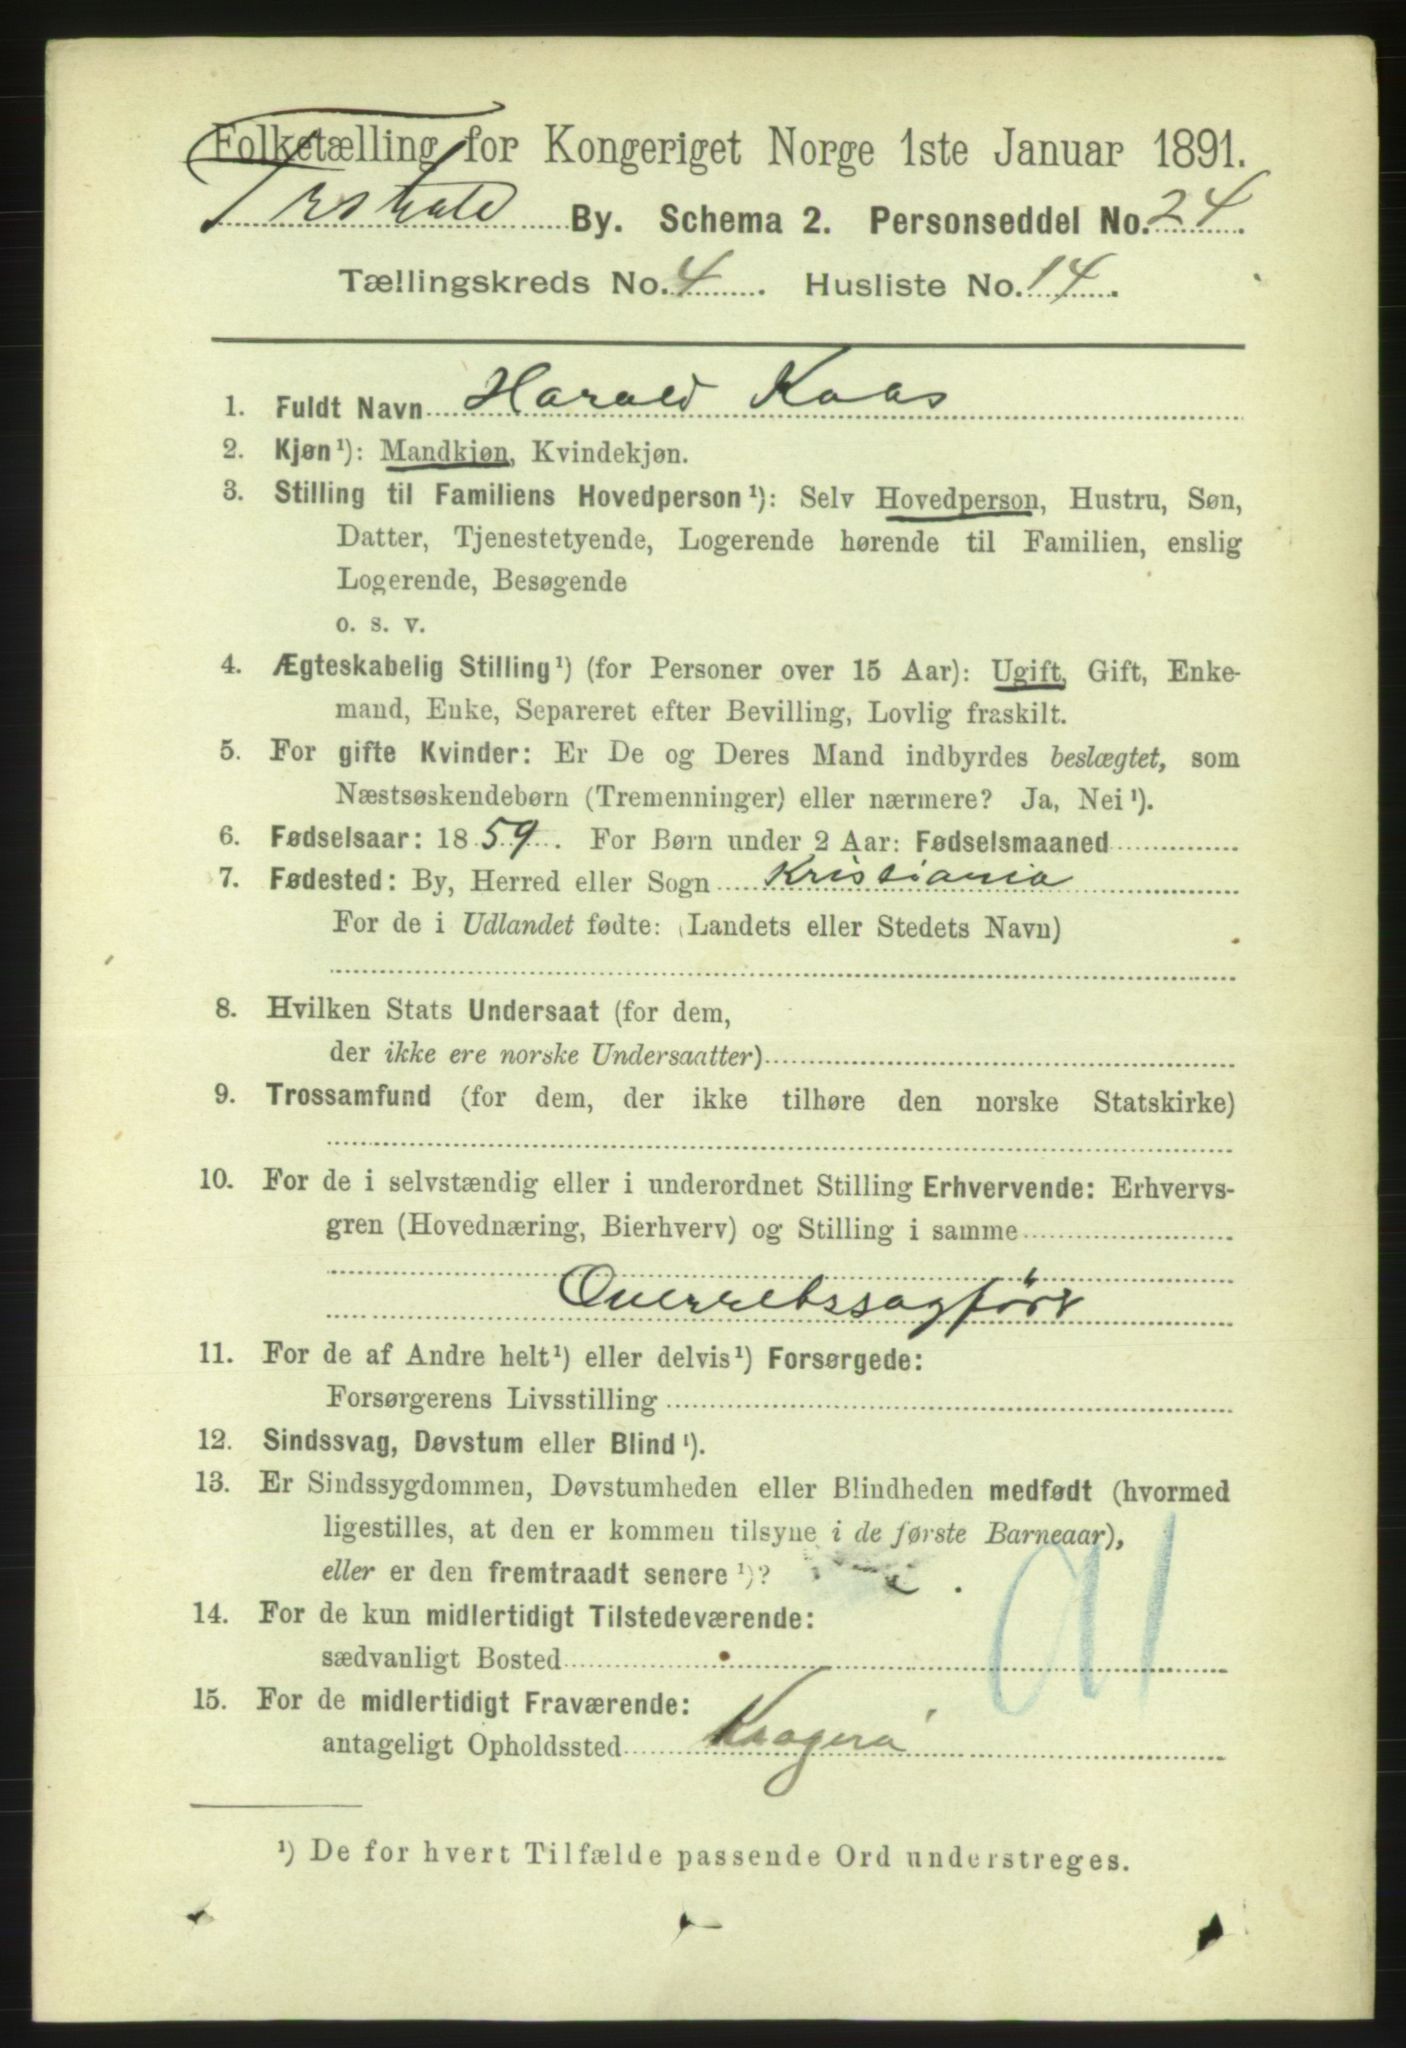 Folketælling for Kongeriget Norge 1ste Januar 1891.
By. Schema 2. Personseddel No. 24.
Tællingskreds No. 4. Husliste No. 14.
1. Fuldt Navn Harald Kaas
2. Kjøn¹): Mandkjøn, Kvindekjøn.
3. Stilling til Familiens Hovedperson¹): Selv Hovedperson, Hustru, Søn,
Datter, Tjenestetyende, Logerende hørende til Familien, enslig
Logerende, Besøgende
o. s. v.
4. Ægteskabelig Stilling¹) (for Personer over 15 Aar): Ugift, Gift, Enke-
mand, Enke, Separeret efter Bevilling, Lovlig fraskilt.
5. For gifte Kvinder: Er De og Deres Mand indbyrdes beslægtet, som
Næstsøskendebørn (Tremenninger) eller nærmere? Ja, Nei¹).
6. Fødselsaar: 1859. For Børn under 2 Aar: Fødselsmaaned
7. Fødested: By, Herred eller Sogn Kristiania
For de i Udlandet fødte: (Landets eller Stedets Navn)
8. Hvilken Stats Undersaat (for dem,
der ikke ere norske Undersaatter)
9. Trossamfund (for dem, der ikke tilhøre den norske Statskirke)
10. For de i selvstændig eller i underordnet Stilling Erhvervende: Erhvervs-
gren (Hovednæring, Bierhverv) og Stilling i samme
Overretssagfører
11. For de af Andre helt¹) eller delvis¹) Forsørgede:
Forsørgerens Livsstilling
12. Sindssvag, Døvstum eller Blind¹).
13. Er Sindssygdommen, Døvstumheden eller Blindheden medfødt (hvormed
ligestilles, at den er kommen tilsyne i de første Barneaar),
eller er den fremtraadt senere¹)?
14. For de kun midlertidigt Tilstedeværende:
sædvanligt Bosted
15. For de midlertidigt Fraværende:
antageligt Opholdssted Kragerø
¹) De for hvert Tilfælde passende Ord understreges.